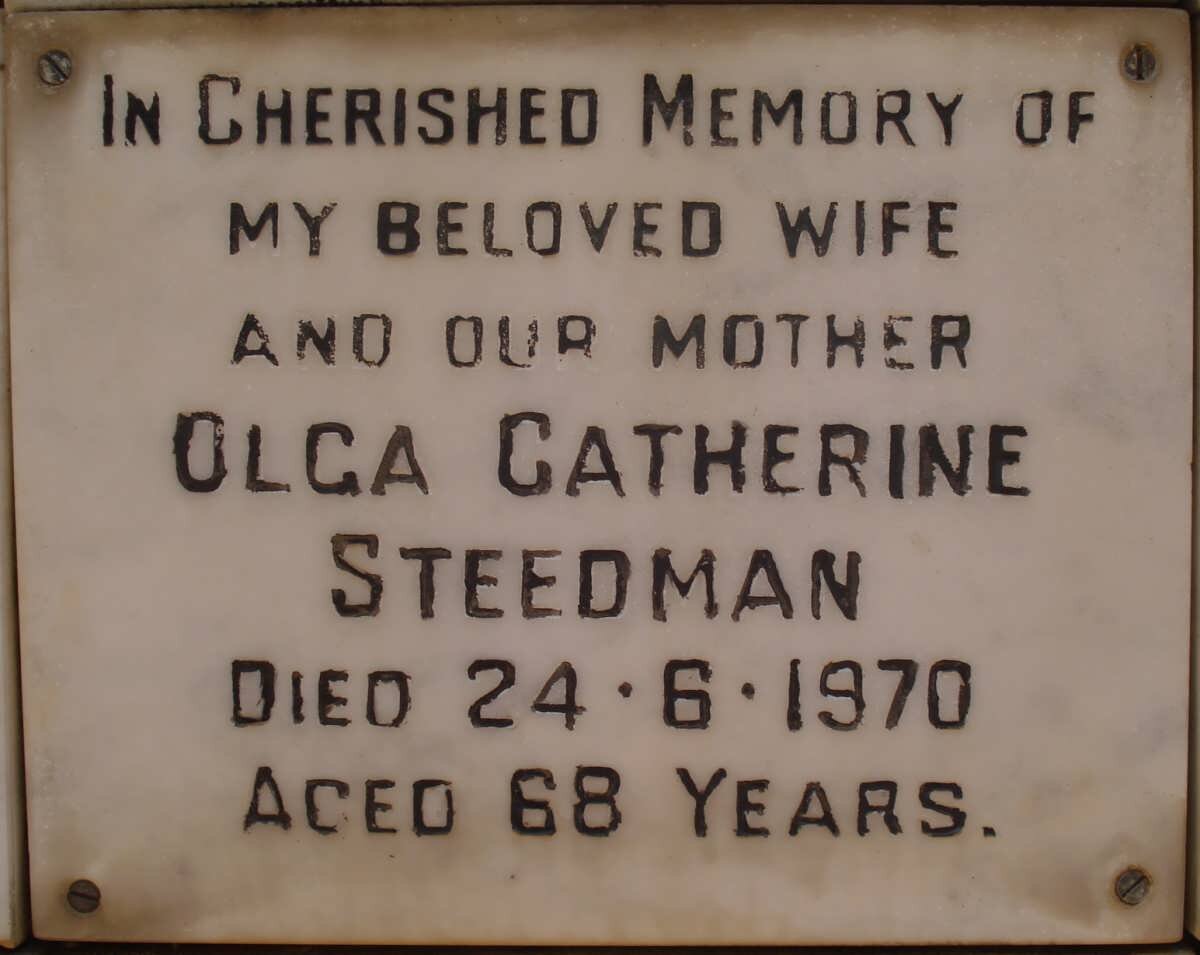 In Cherished Memory of
my beloved wife
and our mother
Olga Catherine
Steedman
Died 24·6·1970
Aged 68 Years.